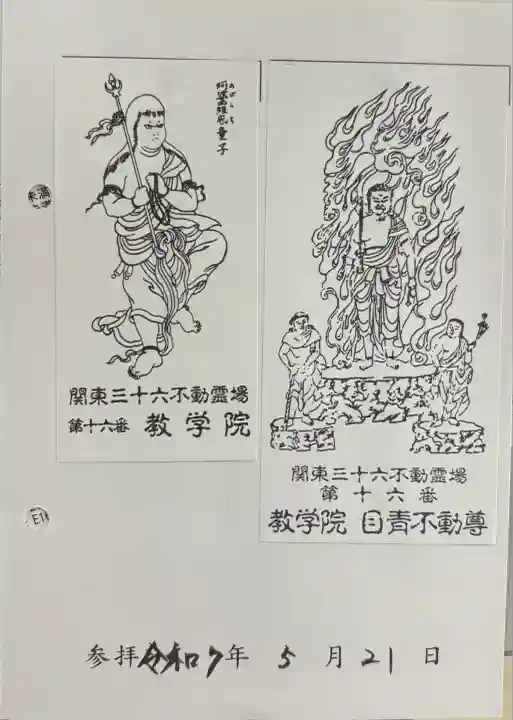 童子
関東三十六不動霊場
第十六番 教学院
関東三十六不動霊場
第十六番
教学院 目青不動尊
参拝 令和7年 5月21日